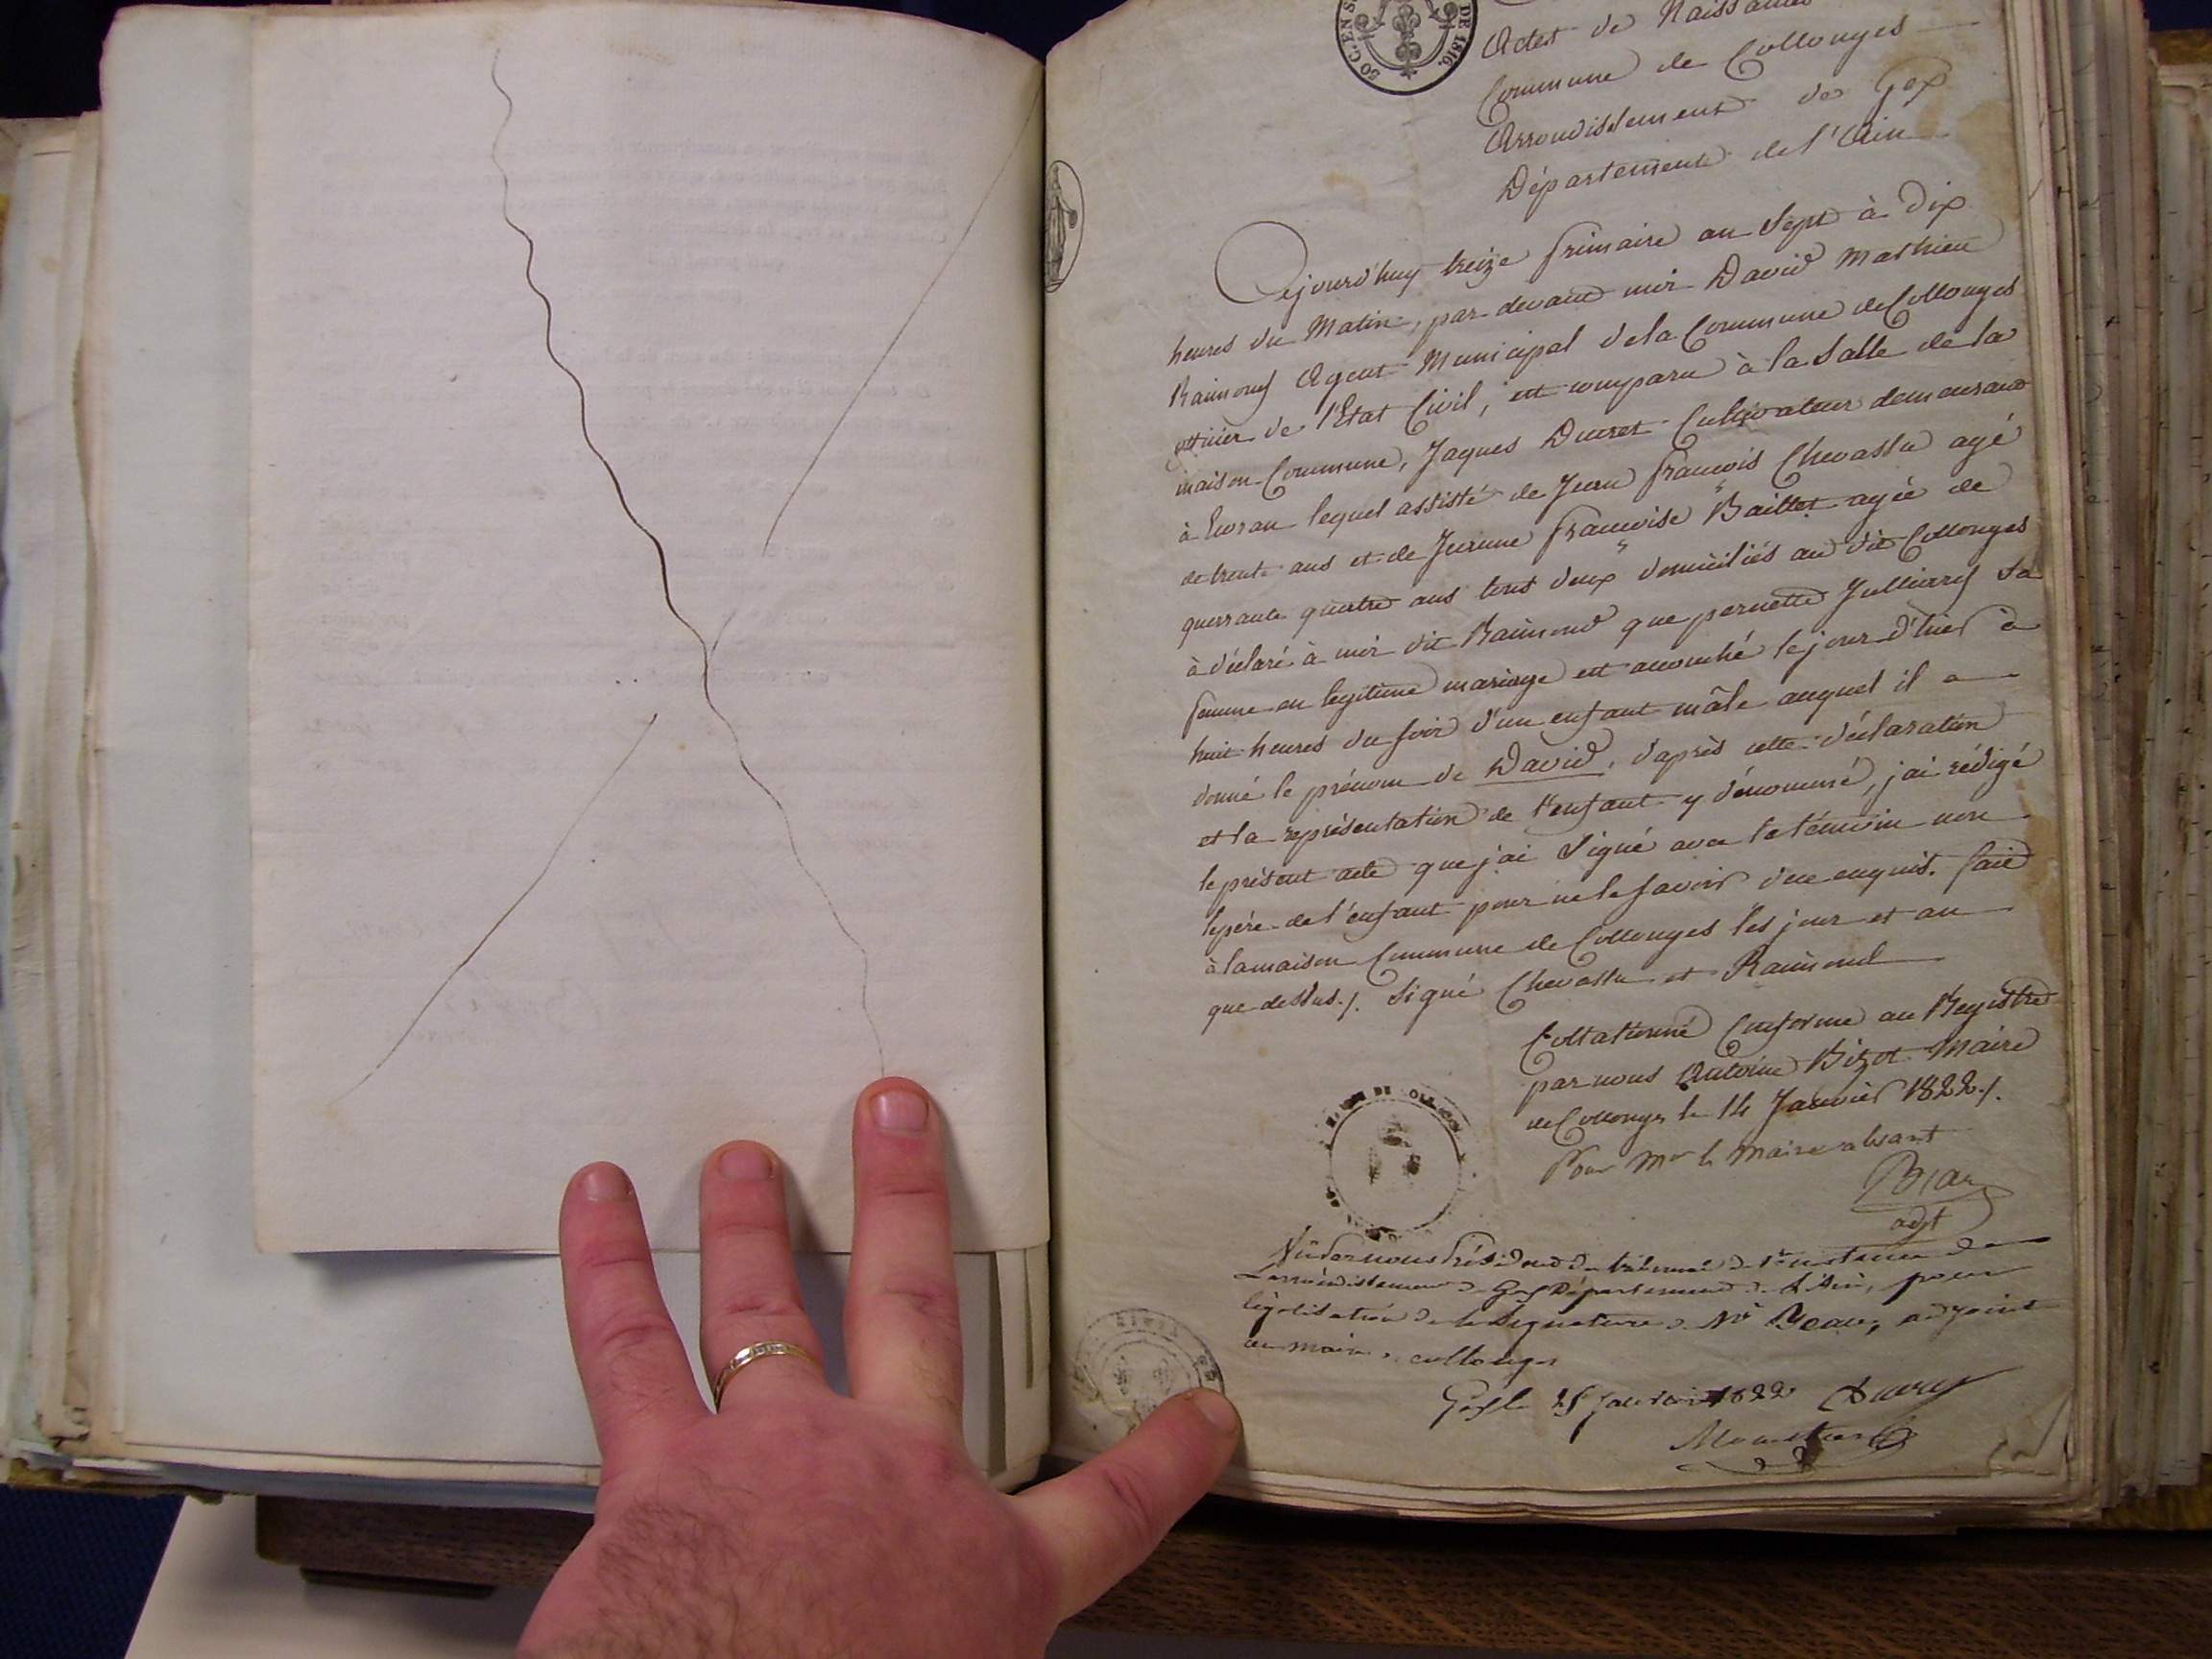 50 C. EN S
DE 1816.
Actes de Naissances
Commune de Collonges
Arrondissement de Gex
Département de l'Ain
Cejourd'huy treize frimaire an Sept à dix
heures du Matin, par devant moi David Mathieu
Raimond Agent Municipal de la Commune de Collonges
officier de l'Etat Civil, est comparu à la Salle de la
maison Commune, Jaques Ducret Cultivateur demeurant
à Ecoran lequel assisté de Jean François Chevassu agé
de trente ans et de Jeanne Françoise Baillet agée de
quarrante quatre ans tous deux domiciliés au dit Collonges
à déclaré à moi dit Raimond que pernette Julliard sa
femme en legitime mariage est accouché le jour d'hier à
huit heures du soir d'un enfant mâle auquel il a
donné le prénom de David, d'après cette déclaration
et la représentation de l'enfant y dénommé, j'ai rédigé
le présent acte que j'ai Signé avec le témoin non
le père de l'enfant pour ne le savoir de ce enquis. fait
à la maison Commune de Collonges les jour et an
que dessus./. Signé Chevassu et Raimond
Collationné Conforme au Registre
par nous Antoine Bizot Maire
de Collonges le 14 Janvier 1822./.
Pour Mr le Maire absant
adjt
Vu par nous Président du tribunal de 1re instance de
L'arrondissement de Gex Département de L'Ain, pour
légalisation de la Signature de Mr adjoint
au maire de collonges
Gex le 15 Janvier 1822